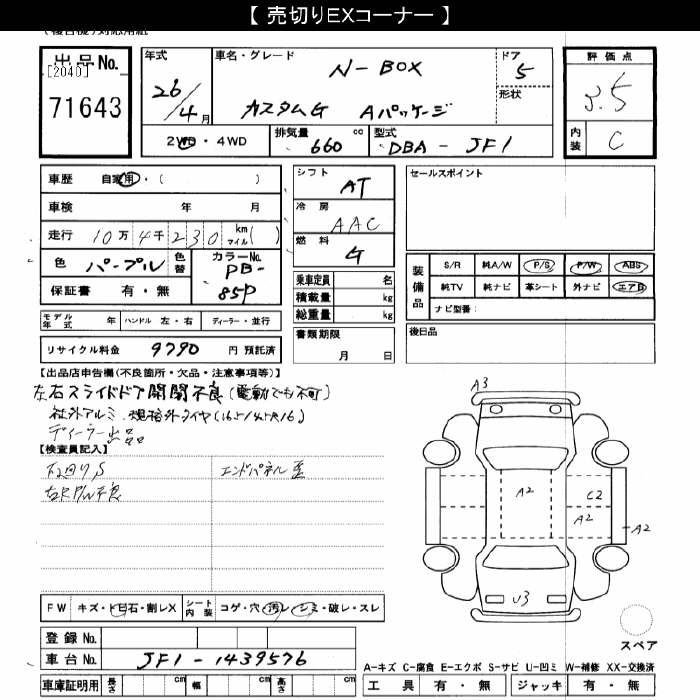 【 売切りEXコーナー 】
出品No.
[2040]
71643
年式
26/4月
車名・グレード
N-BOX
カスタムG Aパッケージ
ドア
5
形状
評価点
3.5
内装
C
2WD・4WD
排気量 660 cc
型式 DBA - JF1
車歴 自家用・( )
車検 年 月
走行 10万4千230 km マイル( )
色 パープル 色替 カラーNo. PB-85P
保証書 有・無
モデル年式 年 ハンドル 左・右 ディーラー・並行
リサイクル料金 9790 円 預託済
シフト AT
冷房 AAC
燃料 G
乗車定員 名
積載量 kg
総重量 kg
書類期限
月 日
セールスポイント
装備品
S/R 純A/W P/S P/W ABS
純TV 純ナビ 革シート 外ナビ エアB
ナビ型番:
後日品
【出品店申告欄(不良箇所・欠品・注意事項等)】
左右スライドドア開閉不良(電動でも不可)
社外アルミ・規格外タイヤ(165/45R16)
ディーラー出品
【検査員記入】
エンドパネル歪
A3
A2
C2
A2
A2
U3
スペア
FW キズ・トビ石・割レX シート内装 コゲ・穴・汚レ・シミ・破レ・スレ
登録No.
車台No. JF1-1439576
車庫証明用 長さ cm 幅 cm 高さ cm
A-キズ C-腐食 E-エクボ S-サビ U-凹ミ W-補修 XX-交換済
工具 有・無 ジャッキ 有・無